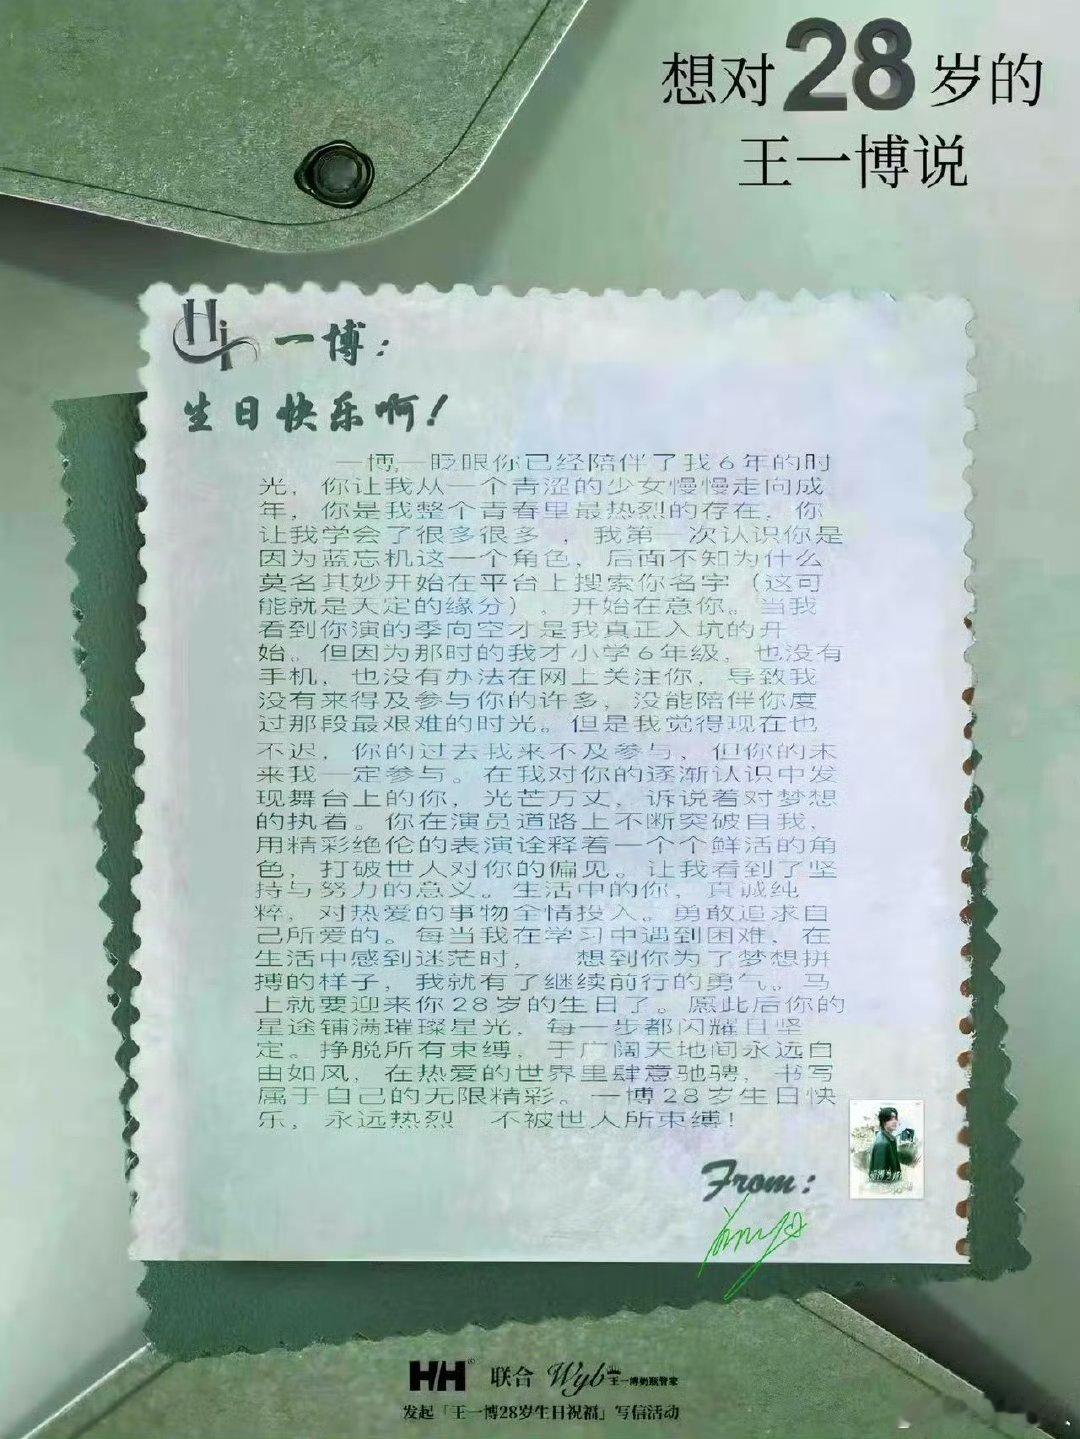 想对28岁的
王一博说
Hi 一博：
生日快乐啊！
一博,一眨眼你已经陪伴了我6年的时
光，你让我从一个青涩的少女慢慢走向成
年，你是我整个青春里最热烈的存在，你
让我学会了很多很多 ，我第一次认识你是
因为蓝忘机这一个角色，后面不知为什么
莫名其妙开始在平台上搜索你名字（这可
能就是天定的缘分），开始在意你。当我
看到你演的季向空才是我真正入坑的开
始。但因为那时的我才小学6年级，也没有
手机，也没有办法在网上关注你，导致我
没有来得及参与你的许多，没能陪伴你度
过那段最艰难的时光。但是我觉得现在也
不迟，你的过去我来不及参与，但你的未
来我一定参与。在我对你的逐渐认识中发
现舞台上的你，光芒万丈，诉说着对梦想
的执着。你在演员道路上不断突破自我，
用精彩绝伦的表演诠释着一个个鲜活的角
色，打破世人对你的偏见。让我看到了坚
持与努力的意义。生活中的你，真诚纯
粹，对热爱的事物全情投入。勇敢追求自
己所爱的。每当我在学习中遇到困难，在
生活中感到迷茫时， 想到你为了梦想拼
搏的样子，我就有了继续前行的勇气。马
上就要迎来你28岁的生日了。愿此后你的
星途铺满璀璨星光，每一步都闪耀且坚
定。挣脱所有束缚，于广阔天地间永远自
由如风，在热爱的世界里肆意驰骋，书写
属于自己的无限精彩。一博28岁生日快
乐，永远热烈 不被世人所束缚！
From:
HH® 联合 Wyb王一博奶瓶管家
发起「王一博28岁生日祝福」写信活动